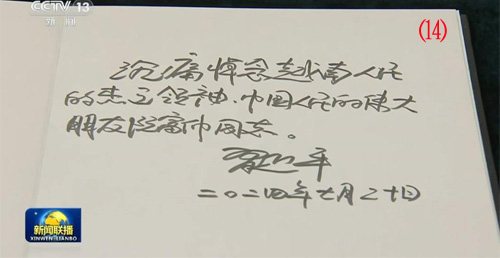 CCTV 13
新闻
(14)
沉痛悼念越南人民
的杰出领袖、中国人民的伟大
朋友阮富仲同志。
习近平
二〇二四年七月二十日
新闻联播
XINWEN LIANBO